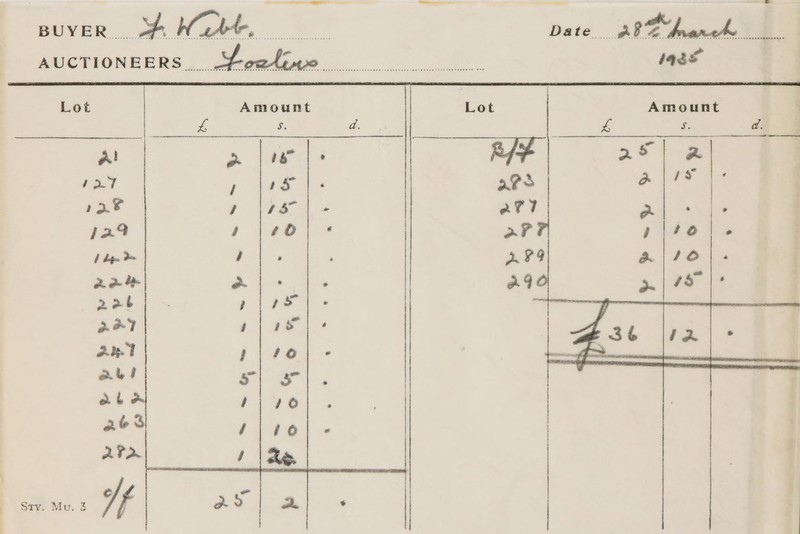 BUYER F. Webb. Date 28th March
AUCTIONEERS Fosters 1935
Lot Amount Lot Amount
£ s. d. £ s. d.
21 2 15 • B/F 25 2
127 1 15 • 283 2 15 •
128 1 15 - 287 2 • •
129 1 10 • 288 1 10 •
142 1 • • 289 2 10 •
224 2 • • 290 2 15 •
226 1 15 •
227 1 15 • £36 12 •
247 1 10 -
261 5 5 •
262 1 10 •
263 1 10 -
282 1
c/f 25 2 •
STY. MU. 3